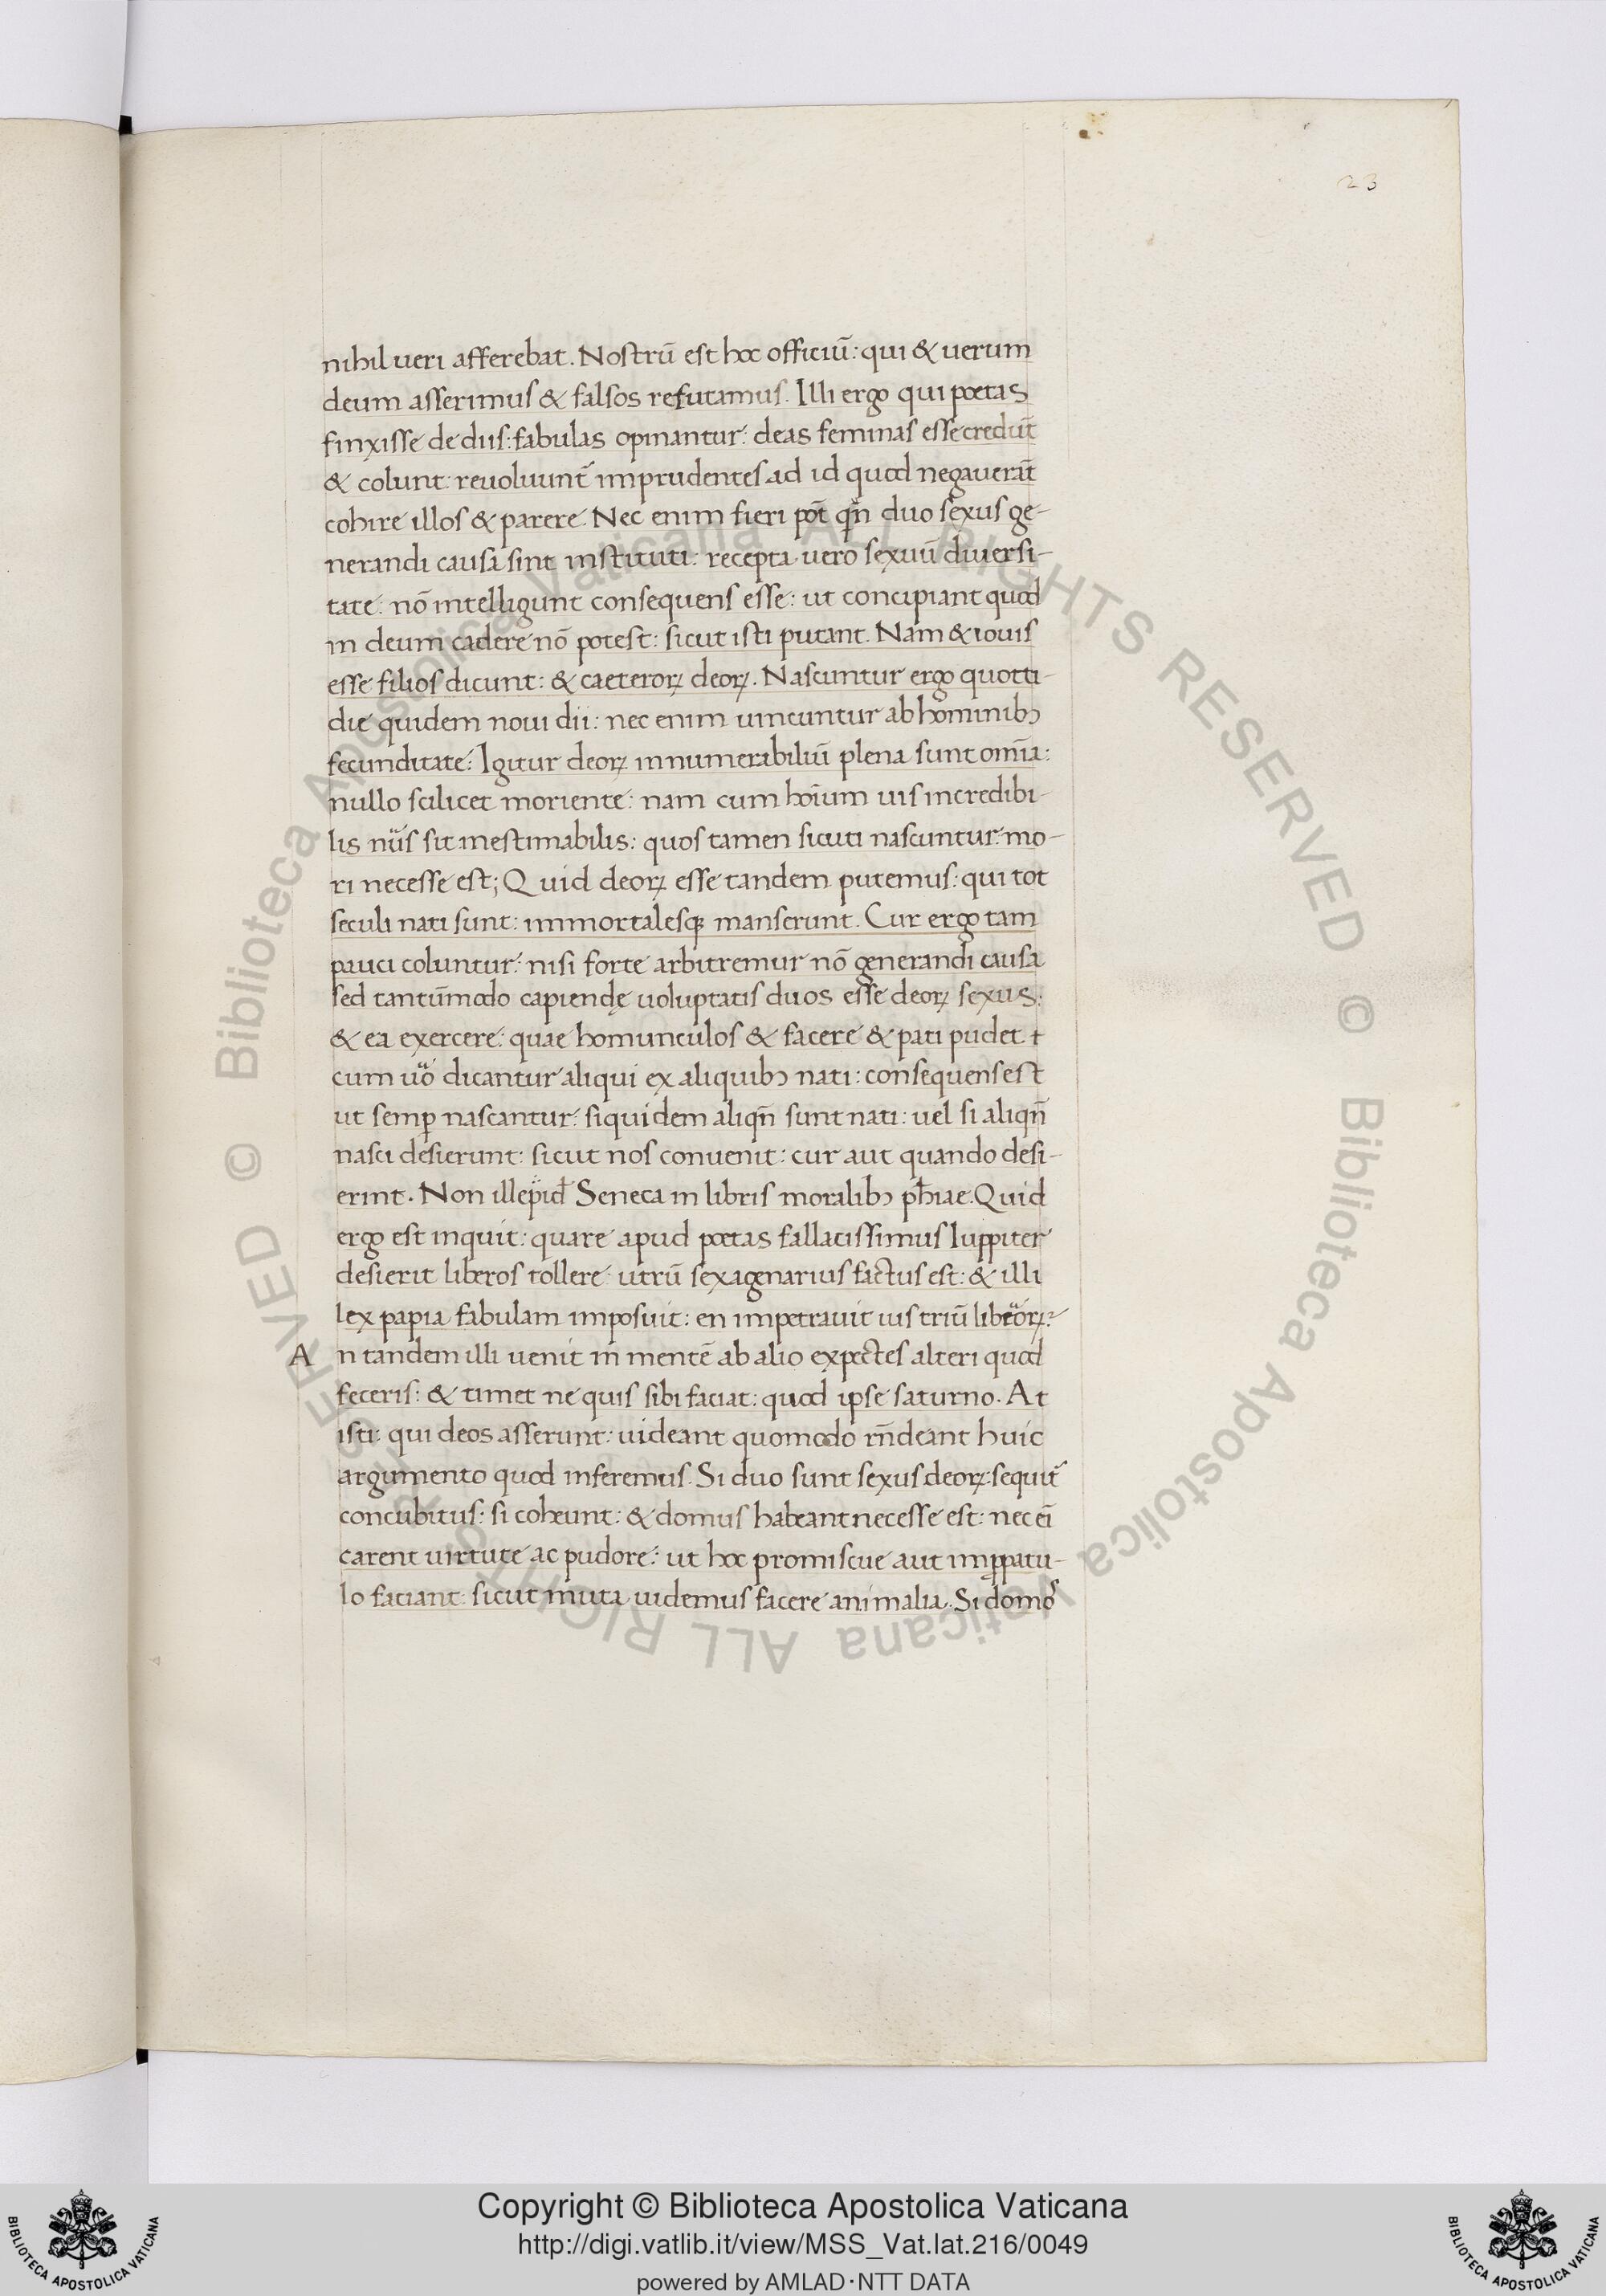 23
nihil ueri afferebat. Nostrū est hoc officiū: qui & uerum
deum asserimus & falsos refutamus. Illi ergo qui poetas
finxisse de diis: fabulas opinantur: deas feminas esse credūt
& colunt: reuoluunt᷑ imprudentes ad id quod negauerāt
cohire illos & parere. Nec enim fieri pōt qn̄ duo sexus ge-
nerandi causa sint instituti: recepta uero sexuū diuersi-
tate: nō intelligunt consequens esse: ut concipiant quod
in deum cadere nō potest: sicut isti putant. Nam & iouis
esse filios dicunt: & caeteroꝝ deoꝝ. Nascuntur ergo quotti-
die quidem noui dii: nec enim uincuntur ab hominibꝫ
fecunditate: Igitur deoꝝ innumerabiliū plena sunt omīa:
nullo scilicet moriente: nam cum hoīum uis incredibi-
lis nūs sit inestimabilis: quos tamen sicuti nascuntur: mo-
ri necesse est; Quid deoꝝ esse tandem putemus: qui tot
seculi nati sunt: immortalesqꝫ manserunt. Cur ergo tam
pauci coluntur: nisi forte arbitremur nō generandi causa
sed tantūmodo capiendę uoluptatis duos esse deoꝝ sexus:
& ea exercere: quae homunculos & facere & pati pudet †
cum uo᷑ dicantur aliqui ex aliquibꝫ nati: consequens est
ut semꝑ nascantur: siquidem aliqn̄ sunt nati: uel si aliqn̄
nasci desierunt: sicut nos conuenit: cur aut quando desi-
erint. Non illepid᷑ Seneca in libris moralibꝫ ph̄iae. Quid
ergo est inquit: quare apud poetas fallacissimus Iuppiter
desierit liberos tollere: utrū sexagenarius factus est: & illi
lex papia fabulam imposuit: en impetrauit ius triū liberoꝝ:
An tandem illi uenit in mentē ab alio expectes alteri quod
feceris: & timet ne quis sibi faciat: quod ipse saturno. At
isti: qui deos asserunt: uideant quomodo rn̄deant huic
argumento quod inferemus. Si duo sunt sexus deoꝝ: sequit᷑
concubitus: si coheunt: & domus habeant necesse est: nec eī
carent uirtute ac pudore: ut hoc promiscue aut in ꝓpatu-
lo faciant: sicut muta uidemus facere animalia. Si domos
Copyright © Biblioteca Apostolica Vaticana
http://digi.vatlib.it/view/MSS_Vat.lat.216/0049
powered by AMLAD·NTT DATA
BIBLIOTECA APOSTOLICA VATICANA
BIBLIOTECA APOSTOLICA VATICANA
© Biblioteca Apostolica Vaticana ALL RIGHTS RESERVED © Biblioteca Apostolica Vaticana ALL RIGHTS RESERVED